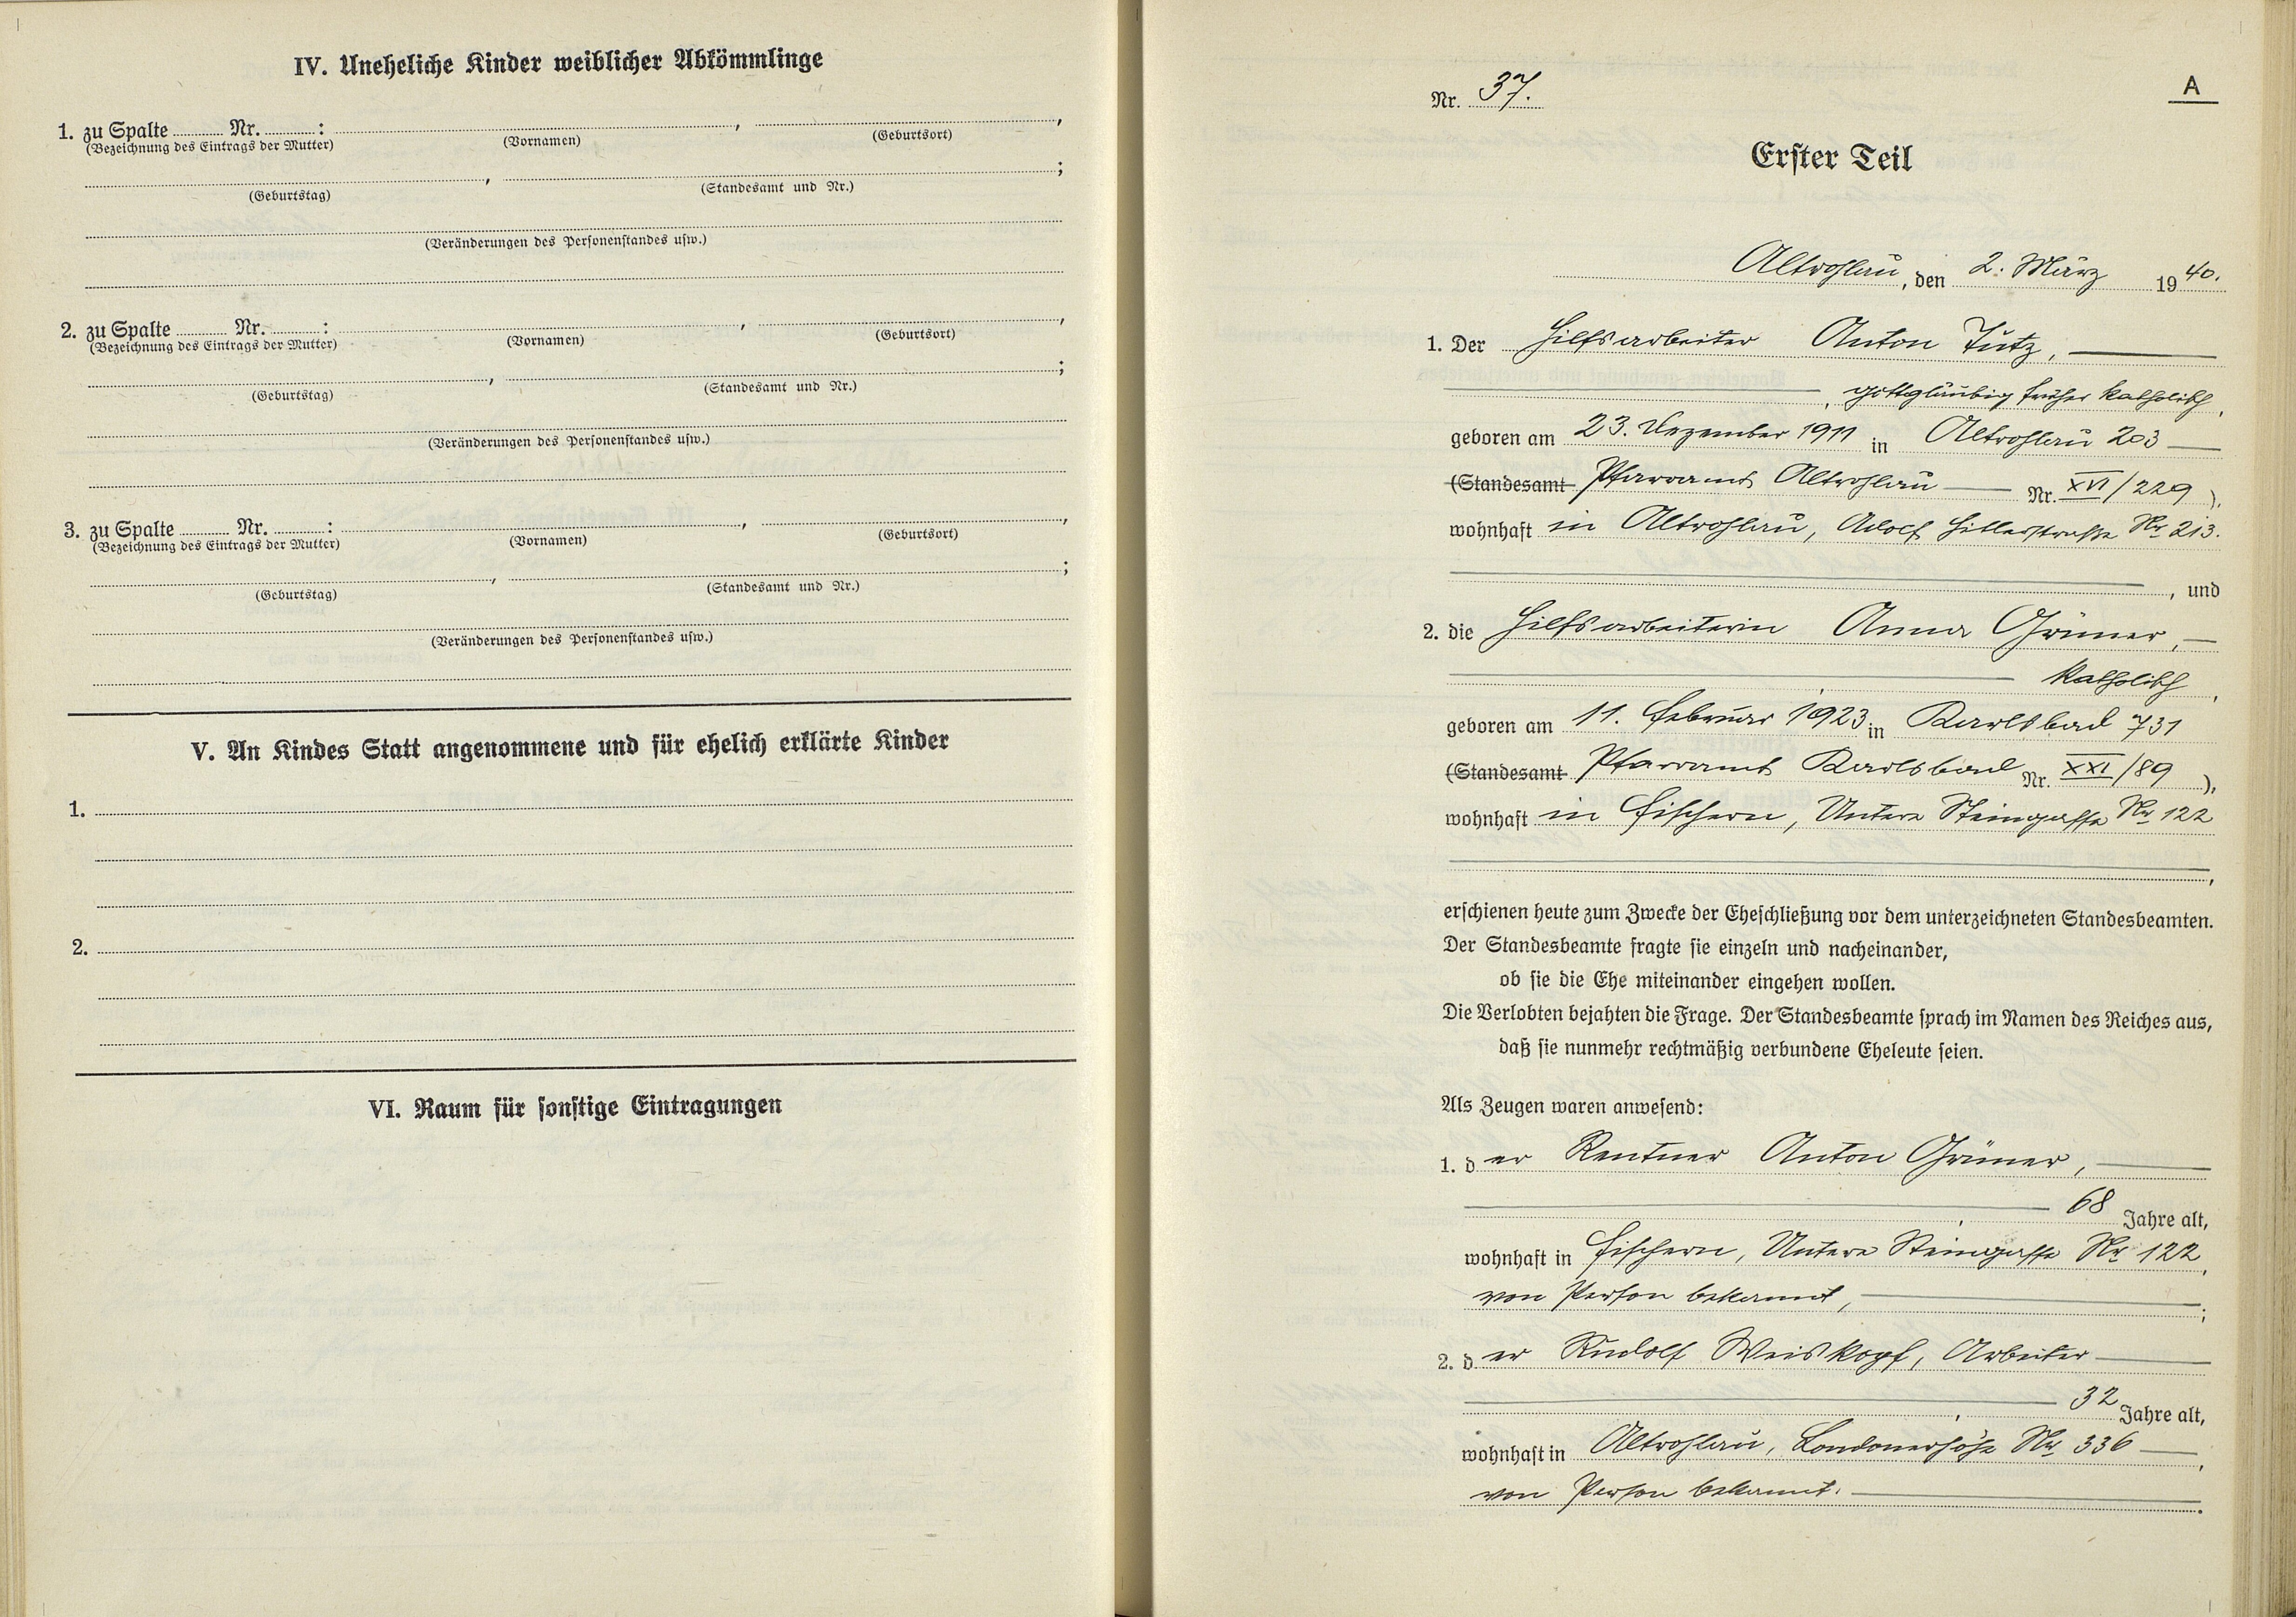 IV. Uneheliche Kinder weiblicher Abkömmlinge
1. zu Spalte ........ Nr. ........ : ........ , ........ ,
(Bezeichnung des Eintrags der Mutter) (Vornamen) (Geburtsort)
........ , ........ ;
(Geburtstag) (Standesamt und Nr.)
(Veränderungen des Personenstandes usw.)
2. zu Spalte ........ Nr. ........ : ........ , ........ ,
(Bezeichnung des Eintrags der Mutter) (Vornamen) (Geburtsort)
........ , ........ ;
(Geburtstag) (Standesamt und Nr.)
(Veränderungen des Personenstandes usw.)
3. zu Spalte ........ Nr. ........ : ........ , ........ ,
(Bezeichnung des Eintrags der Mutter) (Vornamen) (Geburtsort)
........ , ........ ;
(Geburtstag) (Standesamt und Nr.)
(Veränderungen des Personenstandes usw.)
V. An Kindes Statt angenommene und für ehelich erklärte Kinder
1.
2.
VI. Raum für sonstige Eintragungen
A
Nr. 37.
Erster Teil
Altrohlau, den 2. März 1940.
1. Der Hilfsarbeiter Anton Tutz,
, gottgläubig früher katholisch,
geboren am 23. Dezember 1911 in Altrohlau 203
(Standesamt Pfarramt Altrohlau Nr. XVI/229),
wohnhaft in Altrohlau, Adolf Hitlerstraße Nr 213.
, und
2. die Hilfsarbeiterin Anna Grüner,
katholisch,
geboren am 11. Februar 1923 in Karlsbad 731
(Standesamt Pfarramt Karlsbad Nr. XXI/89),
wohnhaft in Fischern, Untere Steingasse Nr 122
,
erschienen heute zum Zwecke der Eheschließung vor dem unterzeichneten Standesbeamten.
Der Standesbeamte fragte sie einzeln und nacheinander,
ob sie die Ehe miteinander eingehen wollen.
Die Verlobten bejahten die Frage. Der Standesbeamte sprach im Namen des Reiches aus,
daß sie nunmehr rechtmäßig verbundene Eheleute seien.
Als Zeugen waren anwesend:
1. der Rentner Anton Grüner,
, 68 Jahre alt,
wohnhaft in Fischern, Untere Steingasse Nr 122,
von Person bekannt, ;
2. der Rudolf Weiskopf, Arbeiter
, 32 Jahre alt,
wohnhaft in Altrohlau, Londonerhöhe Nr 336,
von Person bekannt.